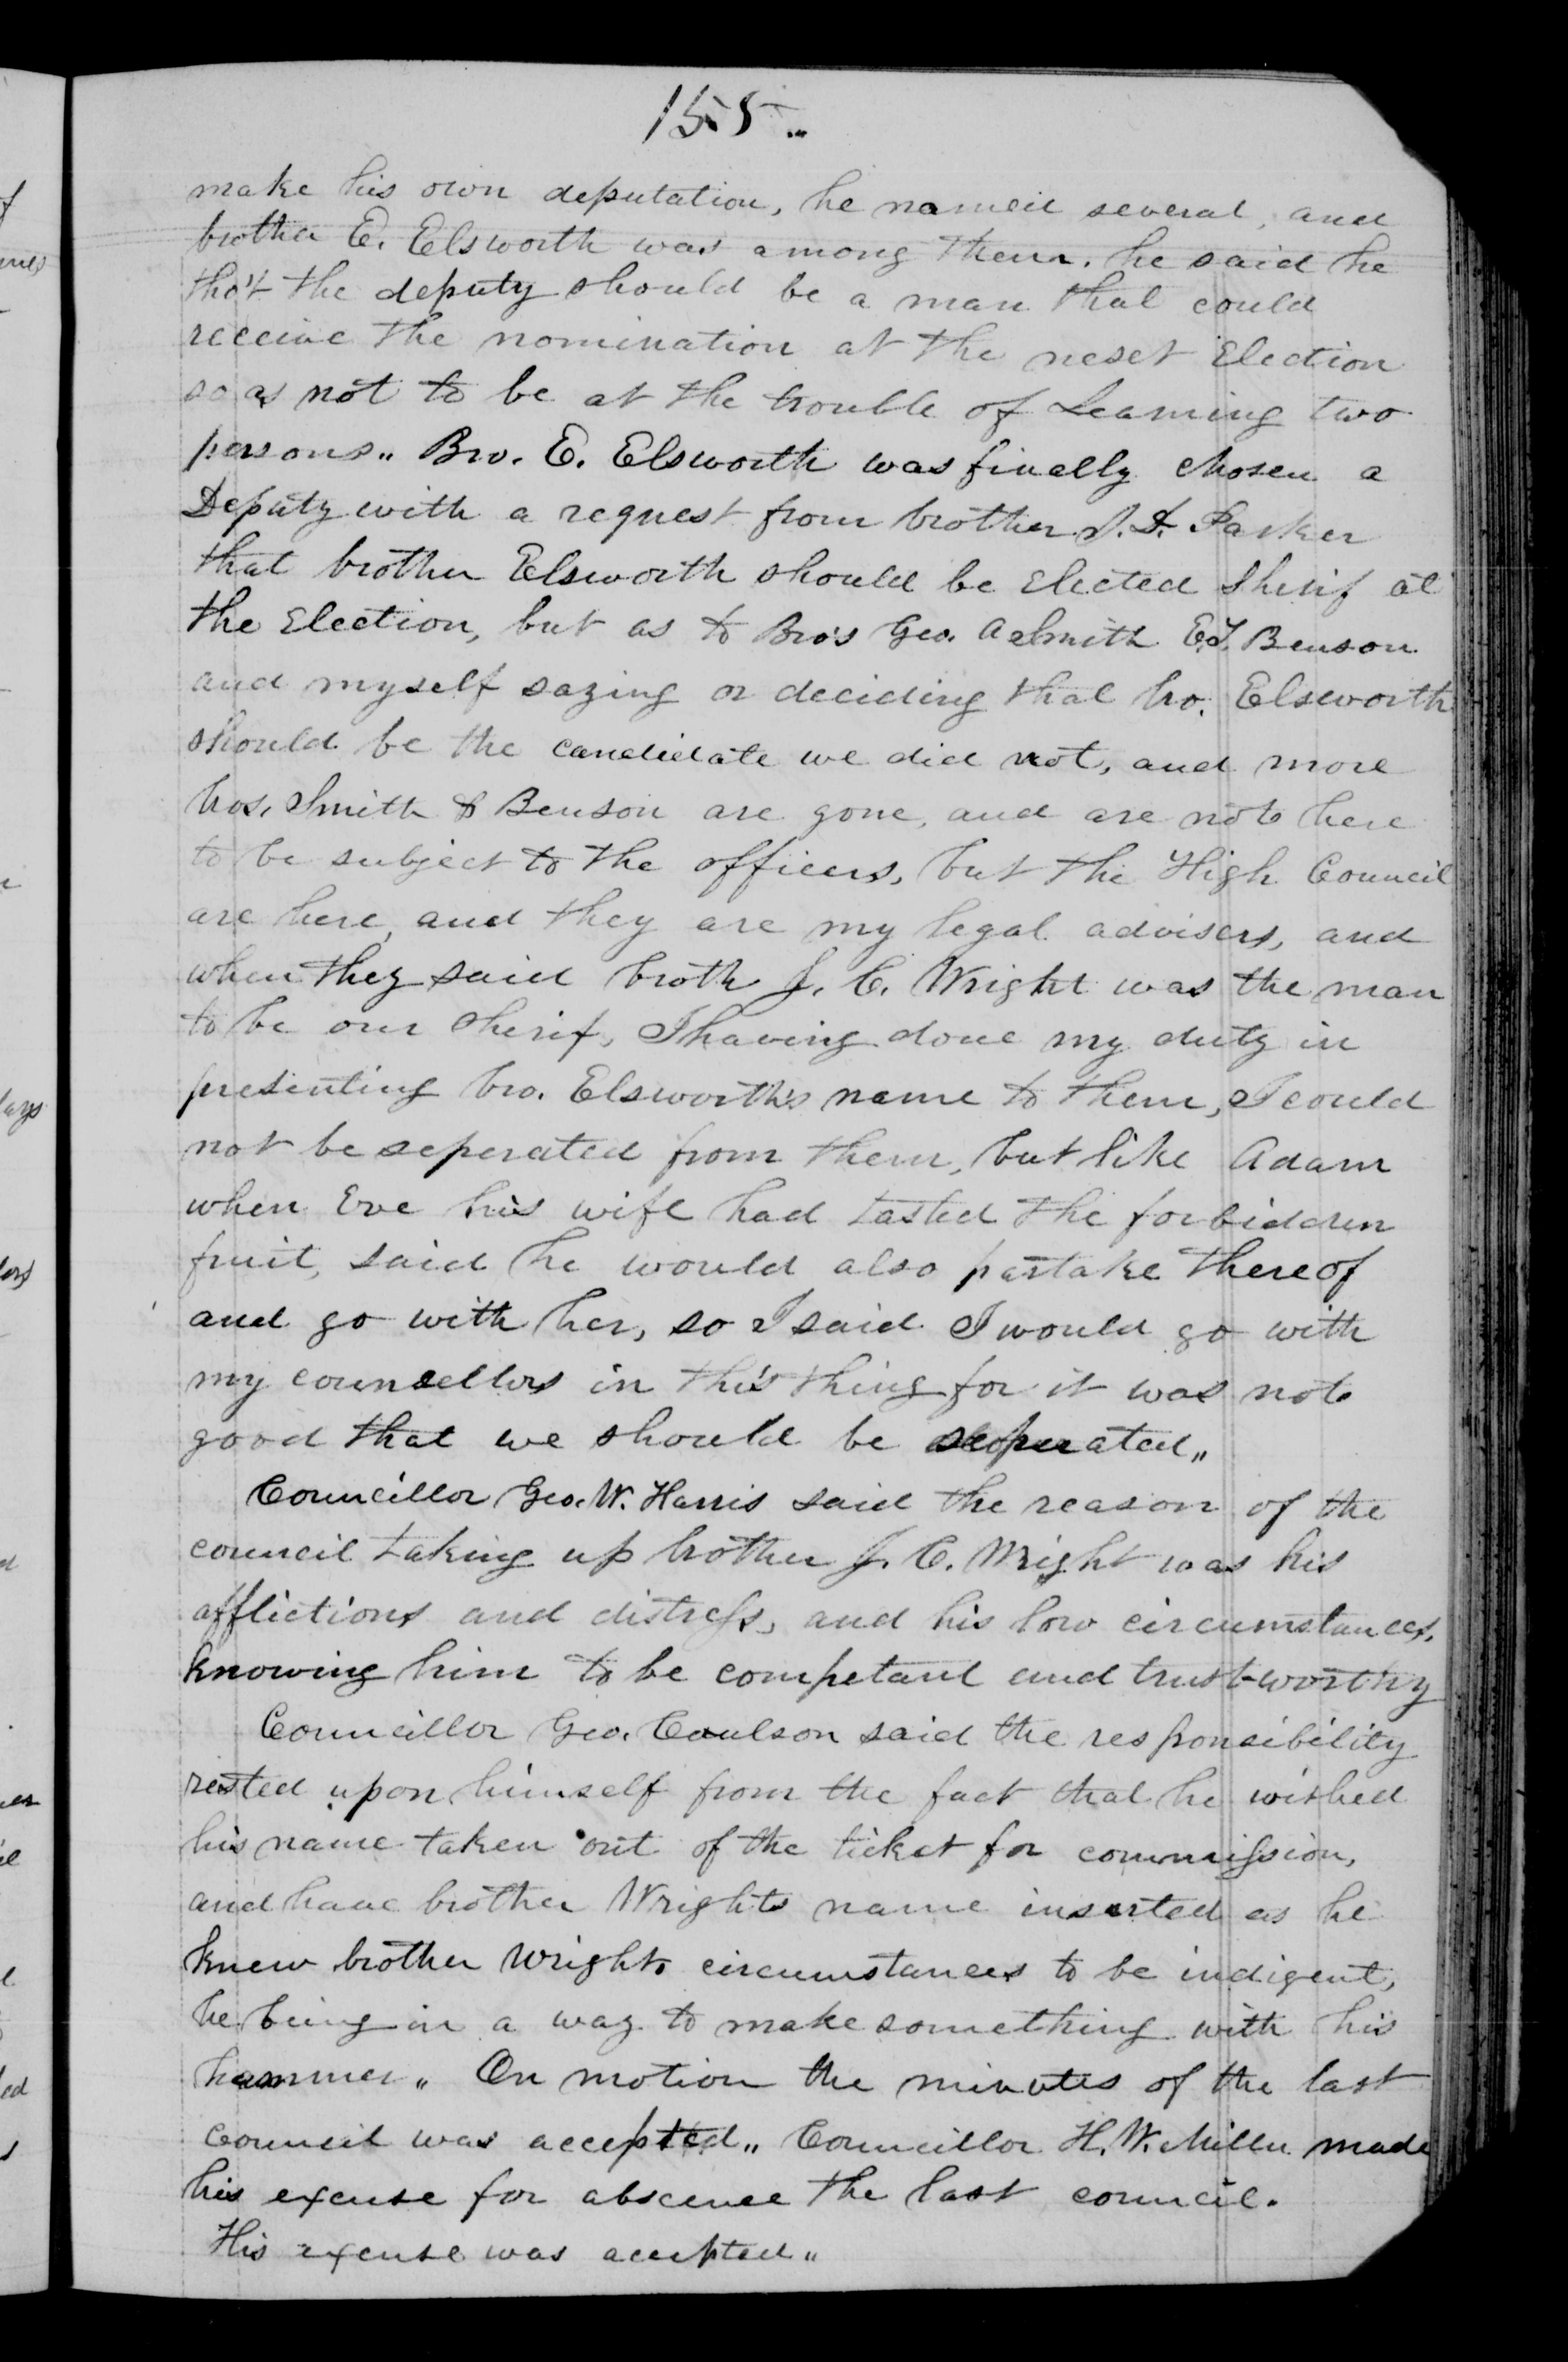 155 „
make his own deputation, he named several, and
brother E. Elsworth was among them. he said he
tho't the deputy should be a man that could
receive the nomination at the next Election
so as not to be at the trouble of Learning two
persons „ Bro. E. Elsworth was finally chosen a
Deputy with a request from brother J. D. Parker
that brother Elsworth should be Elected Sherif at
the Election, but as to Bro's Geo. A Smith E.T. Benson
and myself saying or deciding that bro. Elsworth
should be the candidate we did not, and more
bros. Smith & Benson are gone, and are not here
to be subject to the officers, but the High Council
are here, and they are my legal advisers, and
when they said broth J. C. Wright was the man
to be our Sherif, I having done my duty in
presenting bro. Elsworth's name to them, I could
not be seperated from them, but like Adam
when Eve his wife had tasted the forbidden
fruit, said he would also partake thereof
and go with her, so I said I would go with
my counsellors in this thing for it was not
good that we should be seperated „
Councillor Geo. W. Harris said the reason of the
council taking up brother J. C. Wright was his
afflictions and distress, and his low circumstances,
knowing him to be competant and trust-worthy
Councillor Geo. Coulson said the responsibility
rested upon himself from the fact that he wished
his name taken out of the ticket for commission,
and have brother Wrights name inserted as he
knew brother Wrights circumstances to be indigent,
he being in a way to make something with his
hammer „ On motion the minutes of the last
Council was accepted „ Councillor H. W. Miller made
his excuse for abscence the last council.
His excuse was accepted „